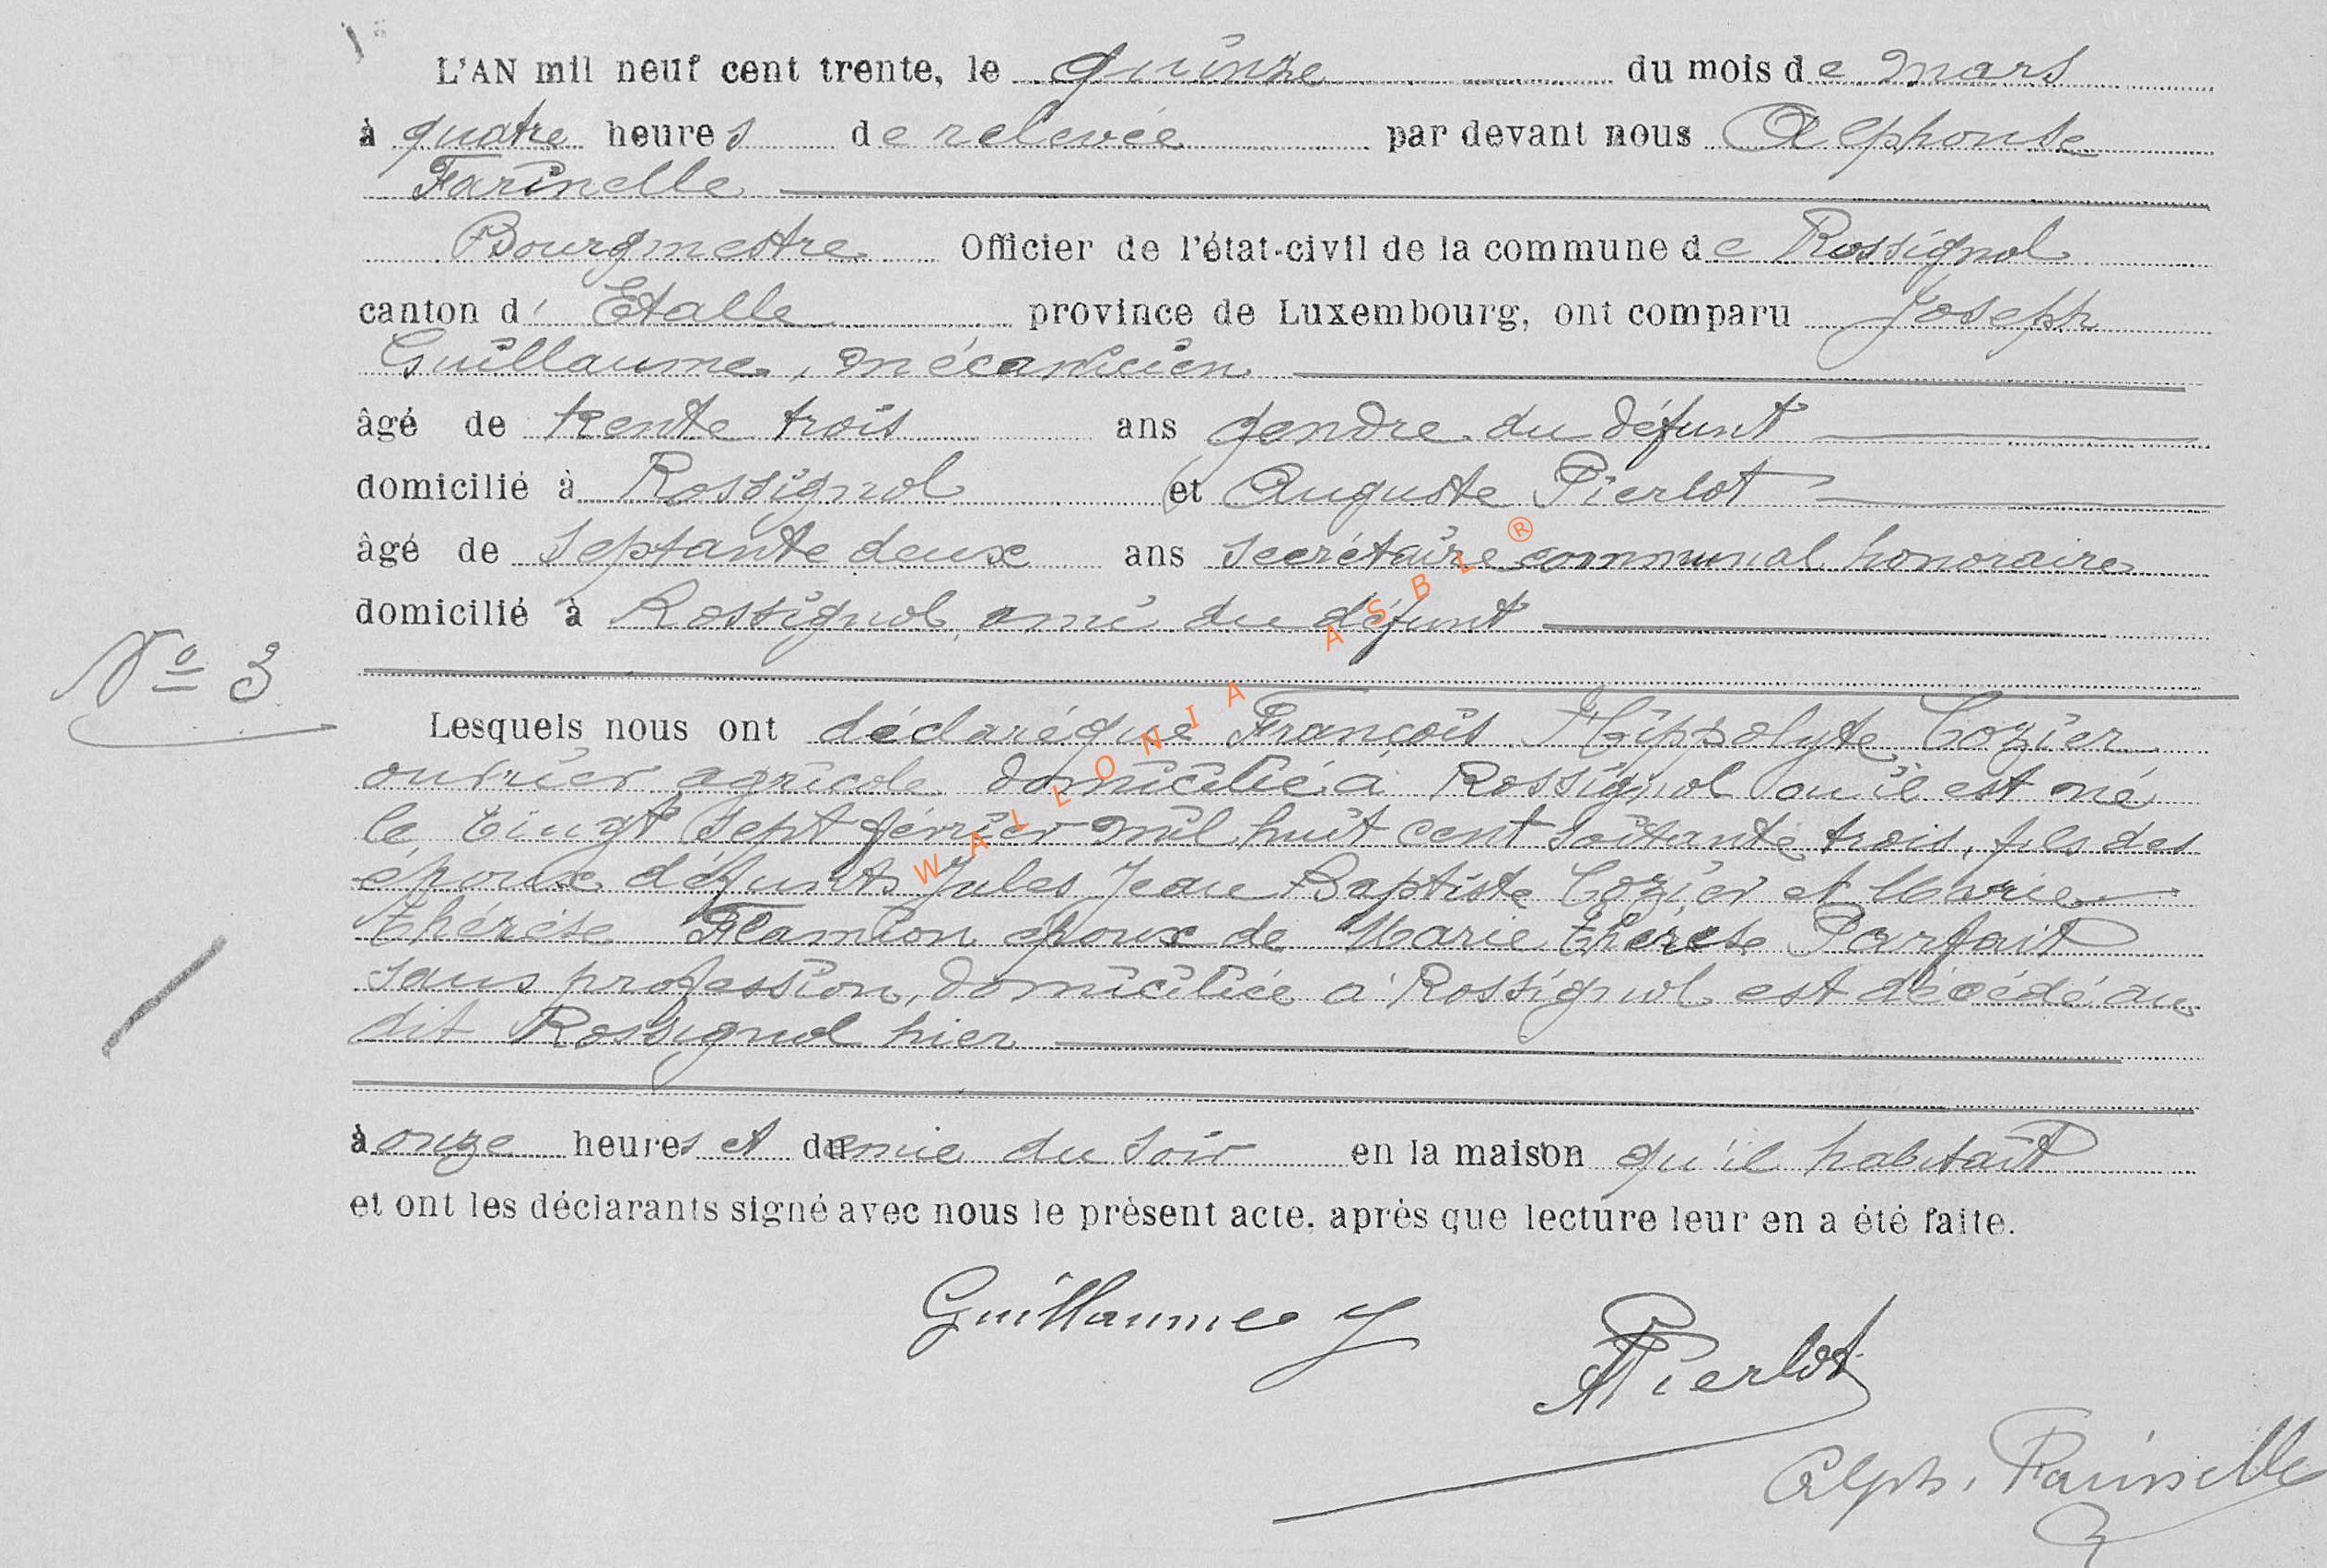 L'AN mil neuf cent trente, le quinze du mois de mars
à quatre heures de relevée par devant nous Alphonse
Farinelle
Bourgmestre Officier de l'état-civil de la commune de Rossignol
canton d'Etalle province de Luxembourg, ont comparu Joseph
Guillaume, mécanicien
âgé de trente trois ans gendre du défunt
domicilié à Rossignol et Auguste Pierlot
âgé de septante deux ans secrétaire communal honoraire
domicilié à Rossignol, ami du défunt
No 3
Lesquels nous ont déclaré que François Hippolyte Cozier
ouvrier agricole domicilié à Rossignol ou il est né
le vingt sept février mil huit cent soixante trois, fils des
époux défunts Jules Jean Baptiste Cozier et Marie
Thérèse Flamion époux de Marie Thérèse Parfait
sans profession, domiciliée à Rossignol est décédé au
dit Rossignol hier
à onze heures et demie du soir en la maison qu'il habitait
et ont les déclarants signé avec nous le présent acte, après que lecture leur en a été faite.
Guillaume J
A Pierlot
Alph. Farinelle
WALLONIA ASBL ®